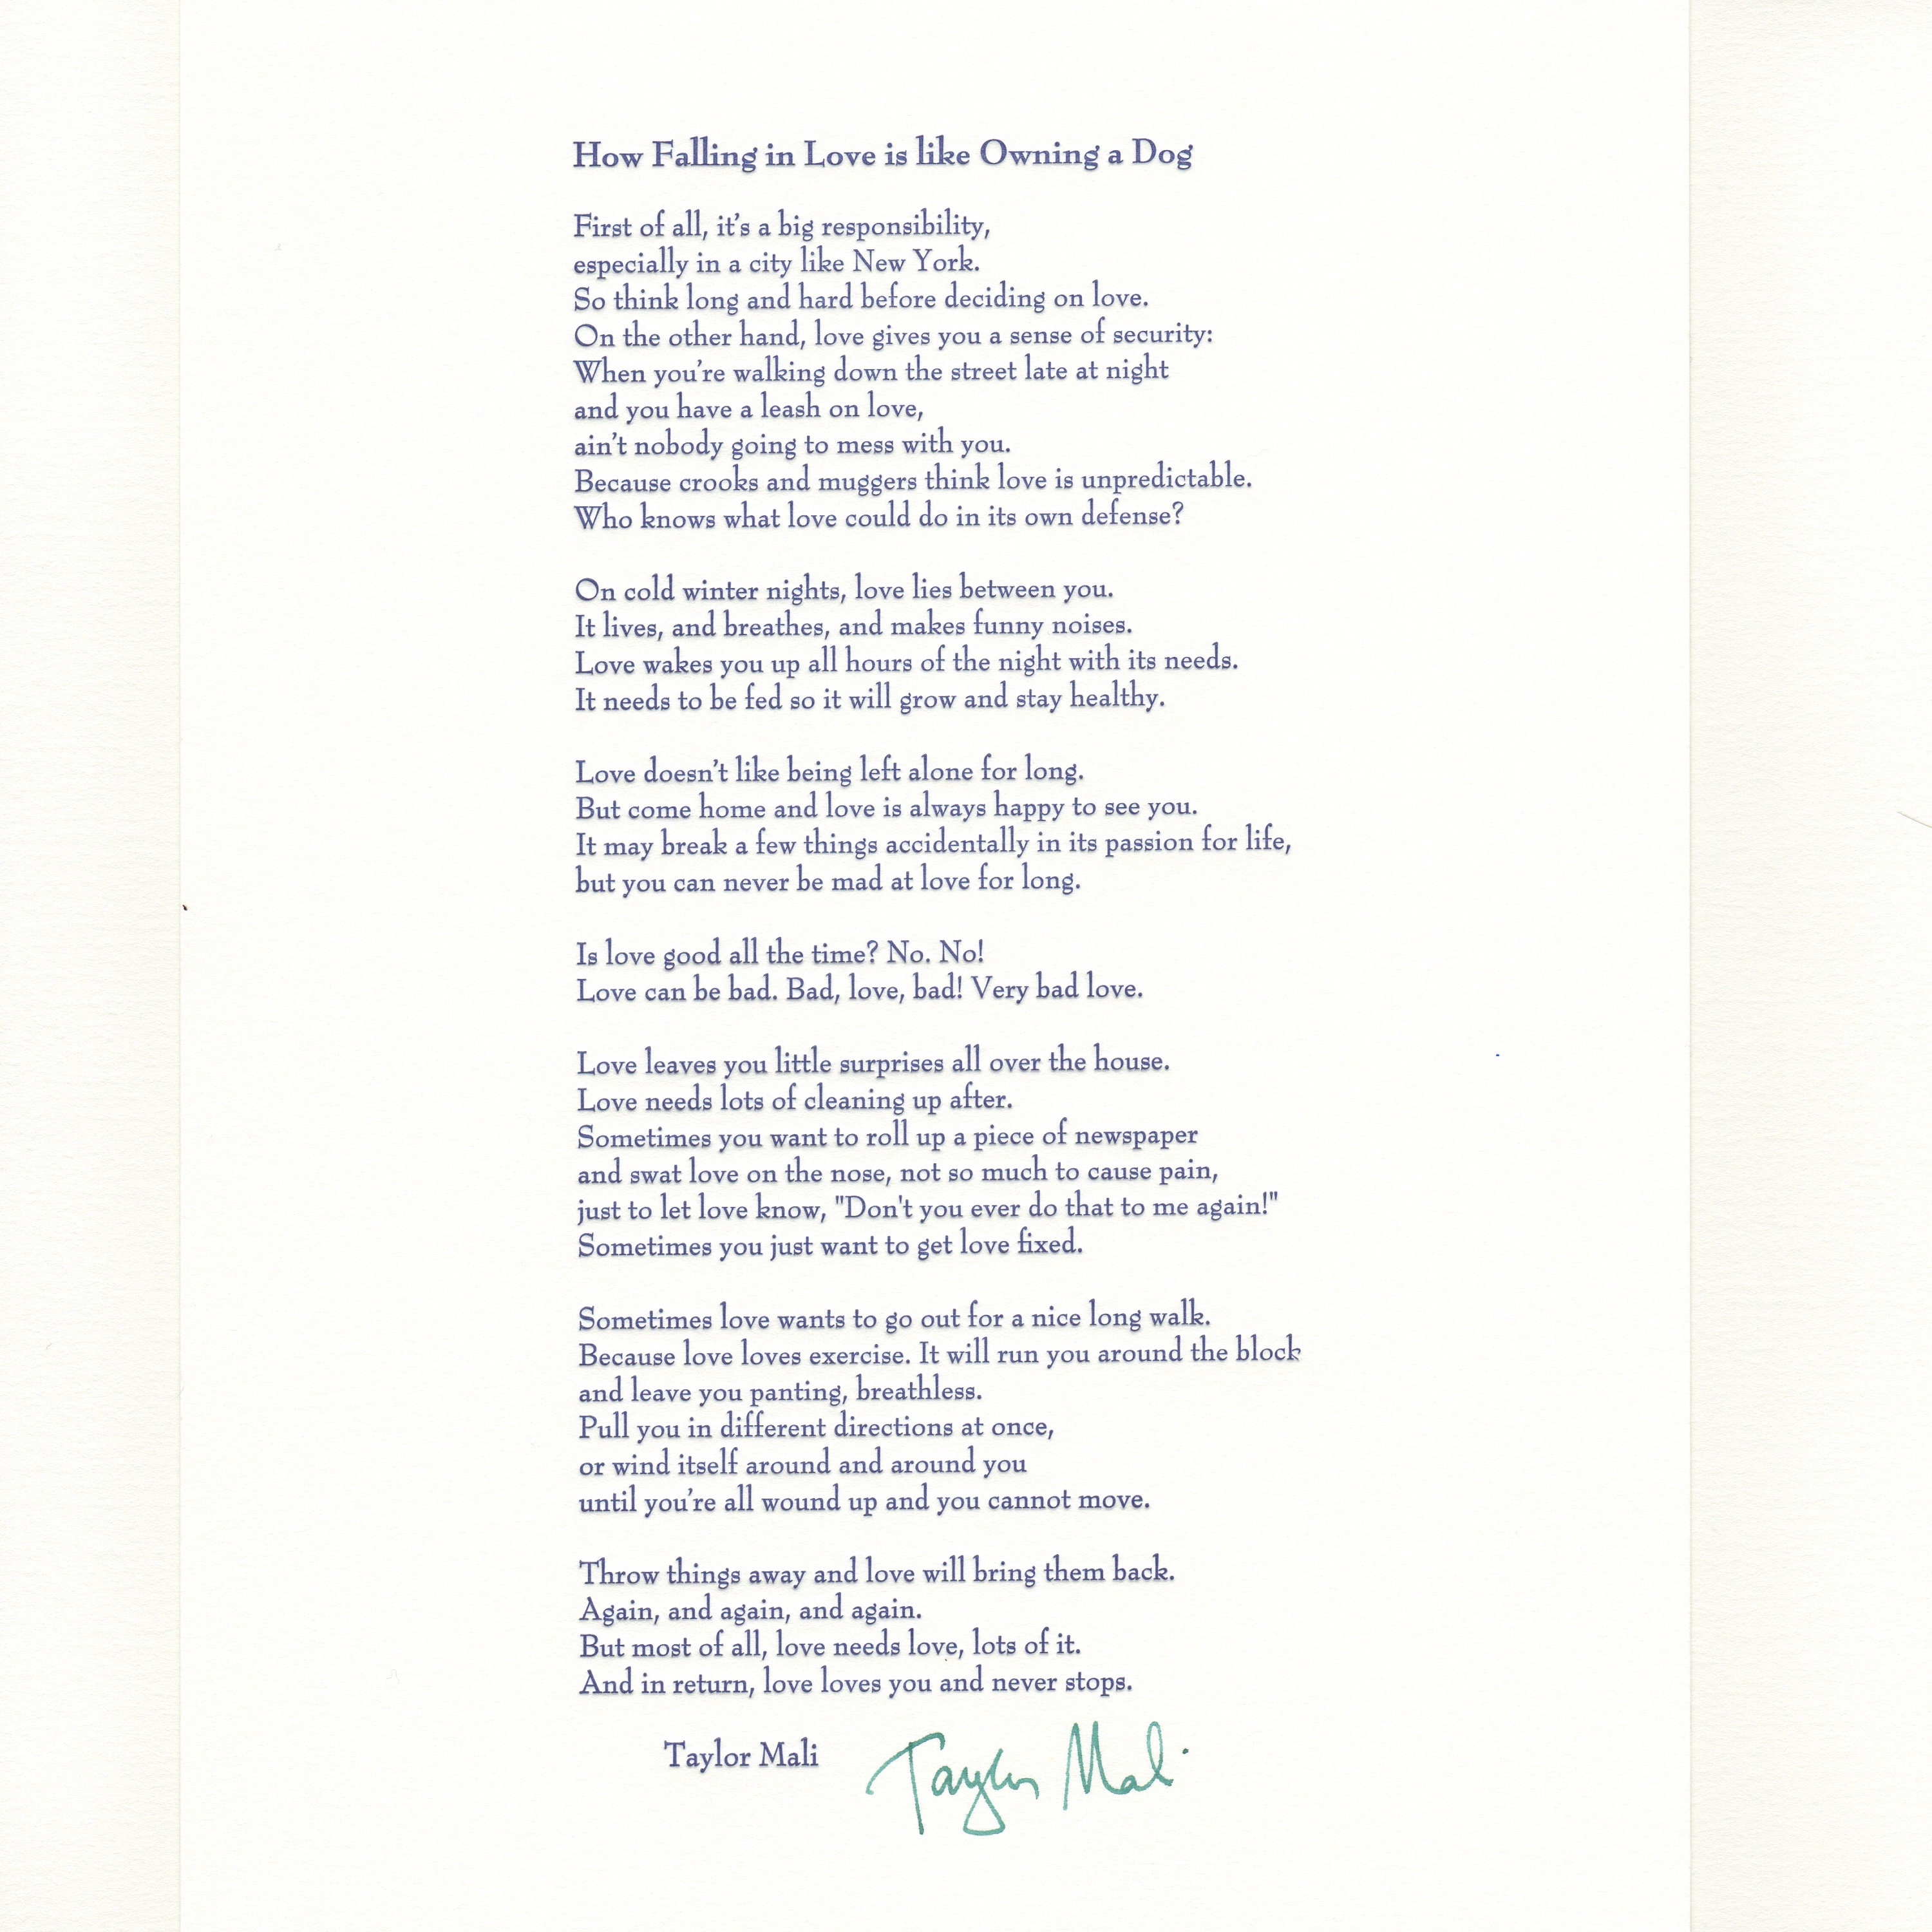 How Falling in Love is like Owning a Dog
First of all, it’s a big responsibility,
especially in a city like New York.
So think long and hard before deciding on love.
On the other hand, love gives you a sense of security:
When you’re walking down the street late at night
and you have a leash on love,
ain’t nobody going to mess with you.
Because crooks and muggers think love is unpredictable.
Who knows what love could do in its own defense?
On cold winter nights, love lies between you.
It lives, and breathes, and makes funny noises.
Love wakes you up all hours of the night with its needs.
It needs to be fed so it will grow and stay healthy.
Love doesn’t like being left alone for long.
But come home and love is always happy to see you.
It may break a few things accidentally in its passion for life,
but you can never be mad at love for long.
Is love good all the time? No. No!
Love can be bad. Bad, love, bad! Very bad love.
Love leaves you little surprises all over the house.
Love needs lots of cleaning up after.
Sometimes you want to roll up a piece of newspaper
and swat love on the nose, not so much to cause pain,
just to let love know, "Don't you ever do that to me again!"
Sometimes you just want to get love fixed.
Sometimes love wants to go out for a nice long walk.
Because love loves exercise. It will run you around the block
and leave you panting, breathless.
Pull you in different directions at once,
or wind itself around and around you
until you’re all wound up and you cannot move.
Throw things away and love will bring them back.
Again, and again, and again.
But most of all, love needs love, lots of it.
And in return, love loves you and never stops.
Taylor Mali Taylor Mali